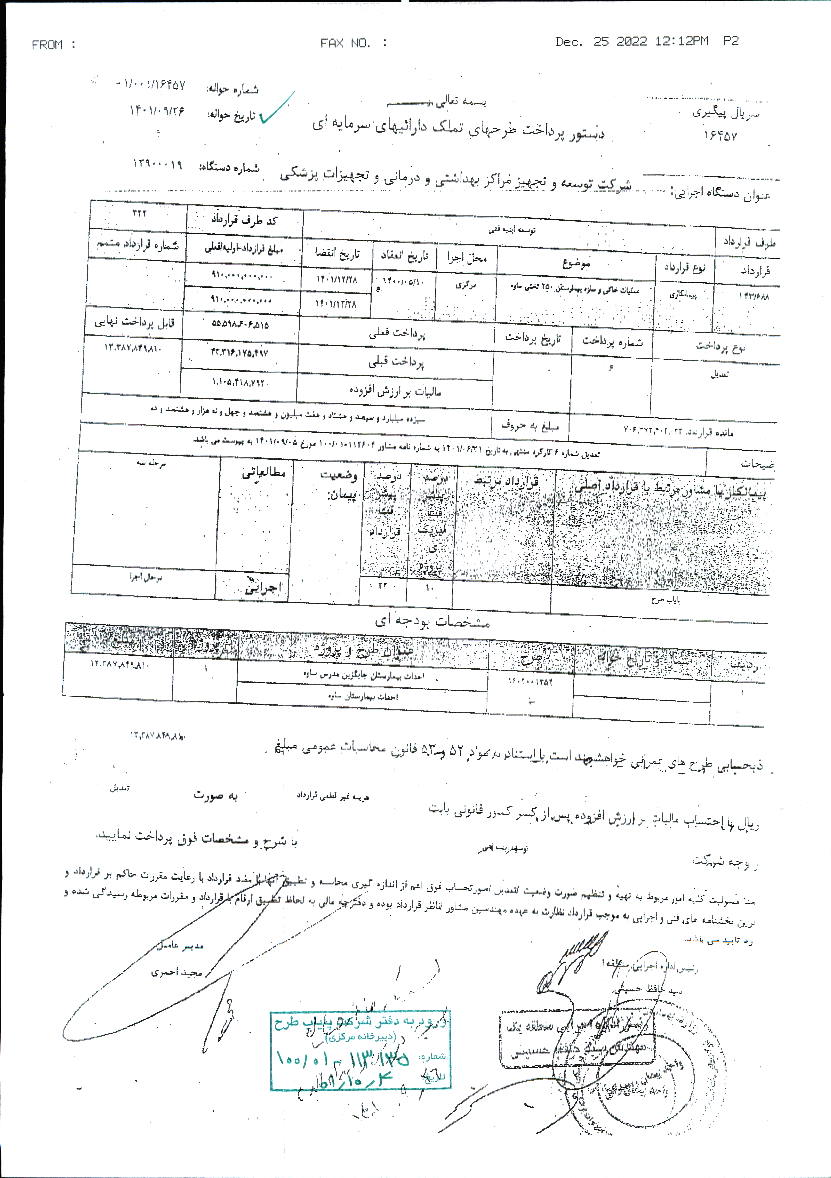 FROM : FAX NO. : Dec. 25 2022 12:12PM P2
شماره حواله: ۰۱/۰۰۱/۱۶۴۵۷
بسمه تعالی
سریال پیگیری
تاریخ حواله: ۱۴۰۱/۰۹/۲۶
دستور پرداخت طرحهای تملک دارائیهای سرمایه ای
۱۶۴۵۷
عنوان دستگاه اجرایی: شرکت توسعه و تجهیز مراکز بهداشتی و درمانی و تجهیزات پزشکی شماره دستگاه: ۱۳۹۰۰۰۱۹
طرف قرارداد توسعه ابنیه فنی کد طرف قرارداد ۲۲۲
قرارداد نوع قرارداد موضوع محل اجرا تاریخ انعقاد تاریخ انقضا مبلغ قرارداد-اولیه/فعلی شماره قرارداد متمم
پیمانکاری عملیات خاکی و سازه بیمارستان ۲۵۰ تختی ساوه مرکزی ۱۴۰۰/۰۵/۱۰ ۱۴۰۱/۱۲/۲۸ ۹۱۰,۰۰۰,۰۰۰,۰۰۰
۱۴۰۱/۱۲/۲۸ ۹۱۰,۰۰۰,۰۰۰,۰۰۰
نوع پرداخت شماره پرداخت تاریخ پرداخت پرداخت فعلی ۵۵,۵۹۸,۶۰۶,۵۱۵ قابل پرداخت نهایی
تعدیل ۶ پرداخت قبلی ۴۲,۳۱۶,۱۷۵,۴۹۷ ۱۳,۳۸۷,۸۴۹,۸۱۰
مالیات بر ارزش افزوده ۱,۱۰۵,۴۱۸,۷۹۲
مانده قرارداد: مبلغ به حروف سیزده میلیارد و سیصد و هشتاد و هفت میلیون و هشتصد و چهل و نه هزار و هشتصد و ده
ضیحات تعدیل شماره ۶ کارکرد منتهی به تاریخ ۱۴۰۱/۰۶/۳۱ به شماره نامه مشاور ۱۰۰/۰۱-۱۱۲۶۰۴ مورخ ۱۴۰۱/۰۹/۰۵ به پیوست می باشد.
پیمانکار یا مشاور مرتبط با قرارداد اصلی قرارداد مرتبط درصد پیشرفت فیزیکی پروژه درصد پیشرفت قرارداد وضعیت پیمان: مطالعاتی مرحله سه
پایاب طرح ۱۰ ۲۲ اجرایی درحال اجرا
مشخصات بودجه ای
ردیف شماره و تاریخ حواله طرح عنوان طرح و پروژه
۱ احداث بیمارستان جایگزین مدرس ساوه ۱ ۱۳,۳۸۷,۸۴۹,۸۱۰
احداث بیمارستان ساوه
ذیحسابی طرح های عمرانی خواهشمند است با استناد به مواد ۵۲ و ۵۳ قانون محاسبات عمومی مبلغ ۱۳,۳۸۷,۸۴۹,۸۱۰
ریال با احتساب مالیات بر ارزش افزوده پس از کسر کسور قانونی بابت هزینه غیر قطعی قرارداد به صورت تعدیل
وجه شرکت توسعه ابنیه فنی با شرح و مشخصات فوق پرداخت نمایید.
مسئولیت کلیه امور مربوط به تهیه و تنظیم صورت وضعیت /تعدیل /صورتحساب فوق اعم از اندازه گیری محاسبه و تطبیق آنها با مفاد قرارداد با رعایت مقررات حاکم بر قرارداد و
ترین بخشنامه های فنی و اجرایی به موجب قرارداد نظارت به عهده مهندسین مشاور /ناظر قرارداد بوده و دفترچه مالی به لحاظ تطبیق ارقام با قرارداد و مقررات مربوطه رسیدگی شده و
رد تایید می باشد.
رئیس اداره اجرایی منطقه ۱
سید حافظ حسینی
مدیر عامل
مجید احمری
مهندس سید حافظ حسینی
ورود به دفتر شرکت پایاب طرح
(دبیرخانه مرکزی)
شماره: ۱۰۰/۰۱-۱۱۳۱۳۵
تاریخ: ۰۱/۱۰/۴